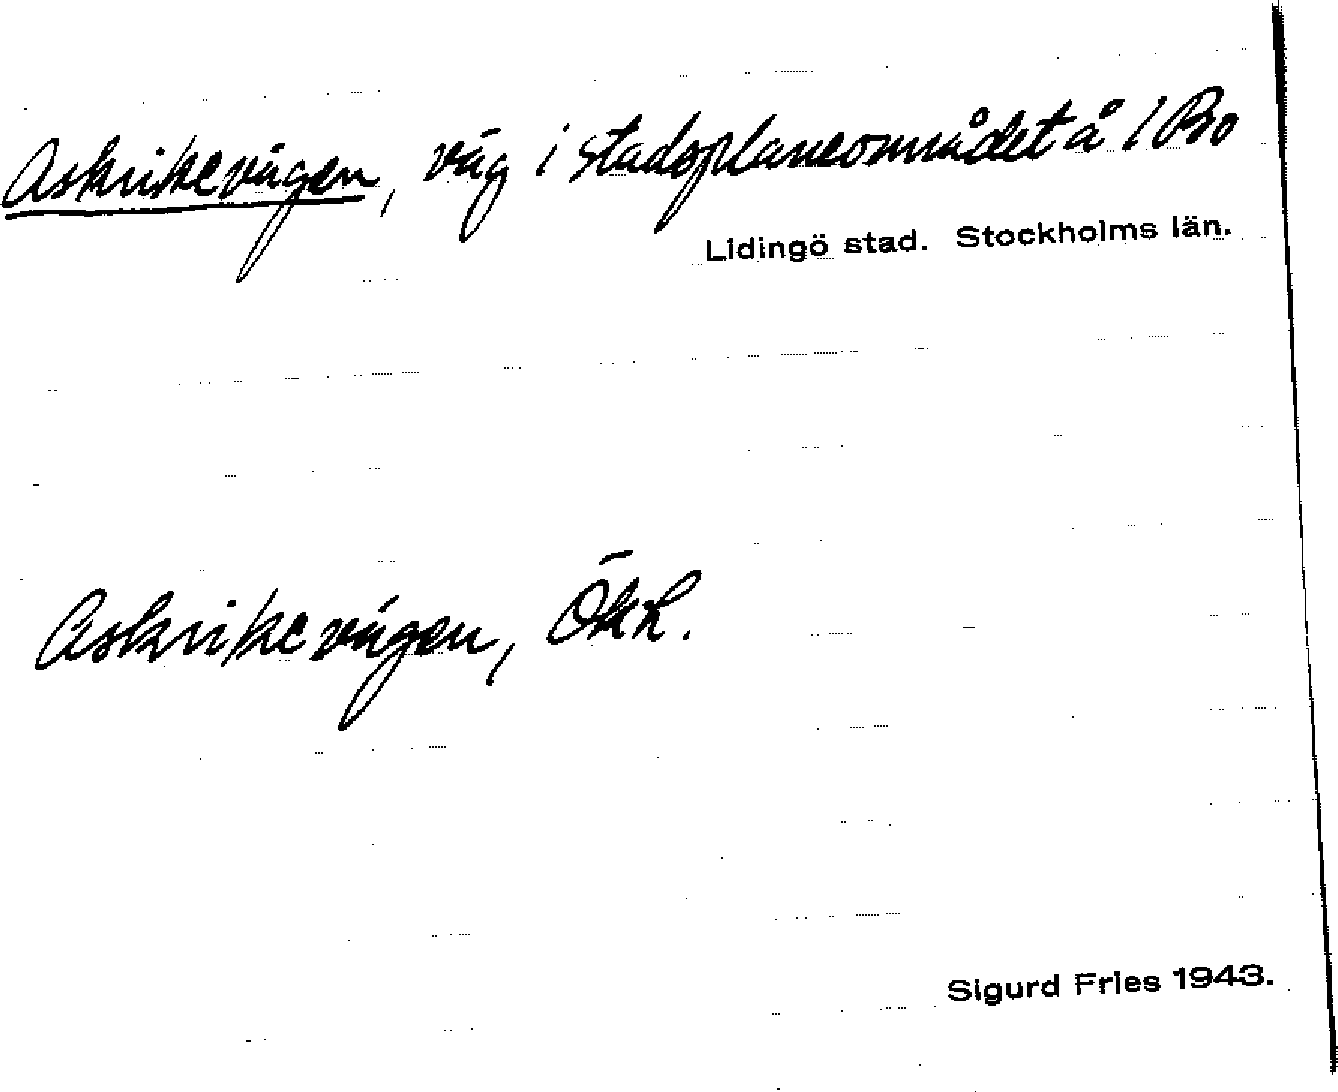 Askrikevägen, väg i stadsplaneområdet å 1 Bo
Lidingö stad. Stockholms län.
Askrikevägen, Ökk.
Sigurd Fries 1943.